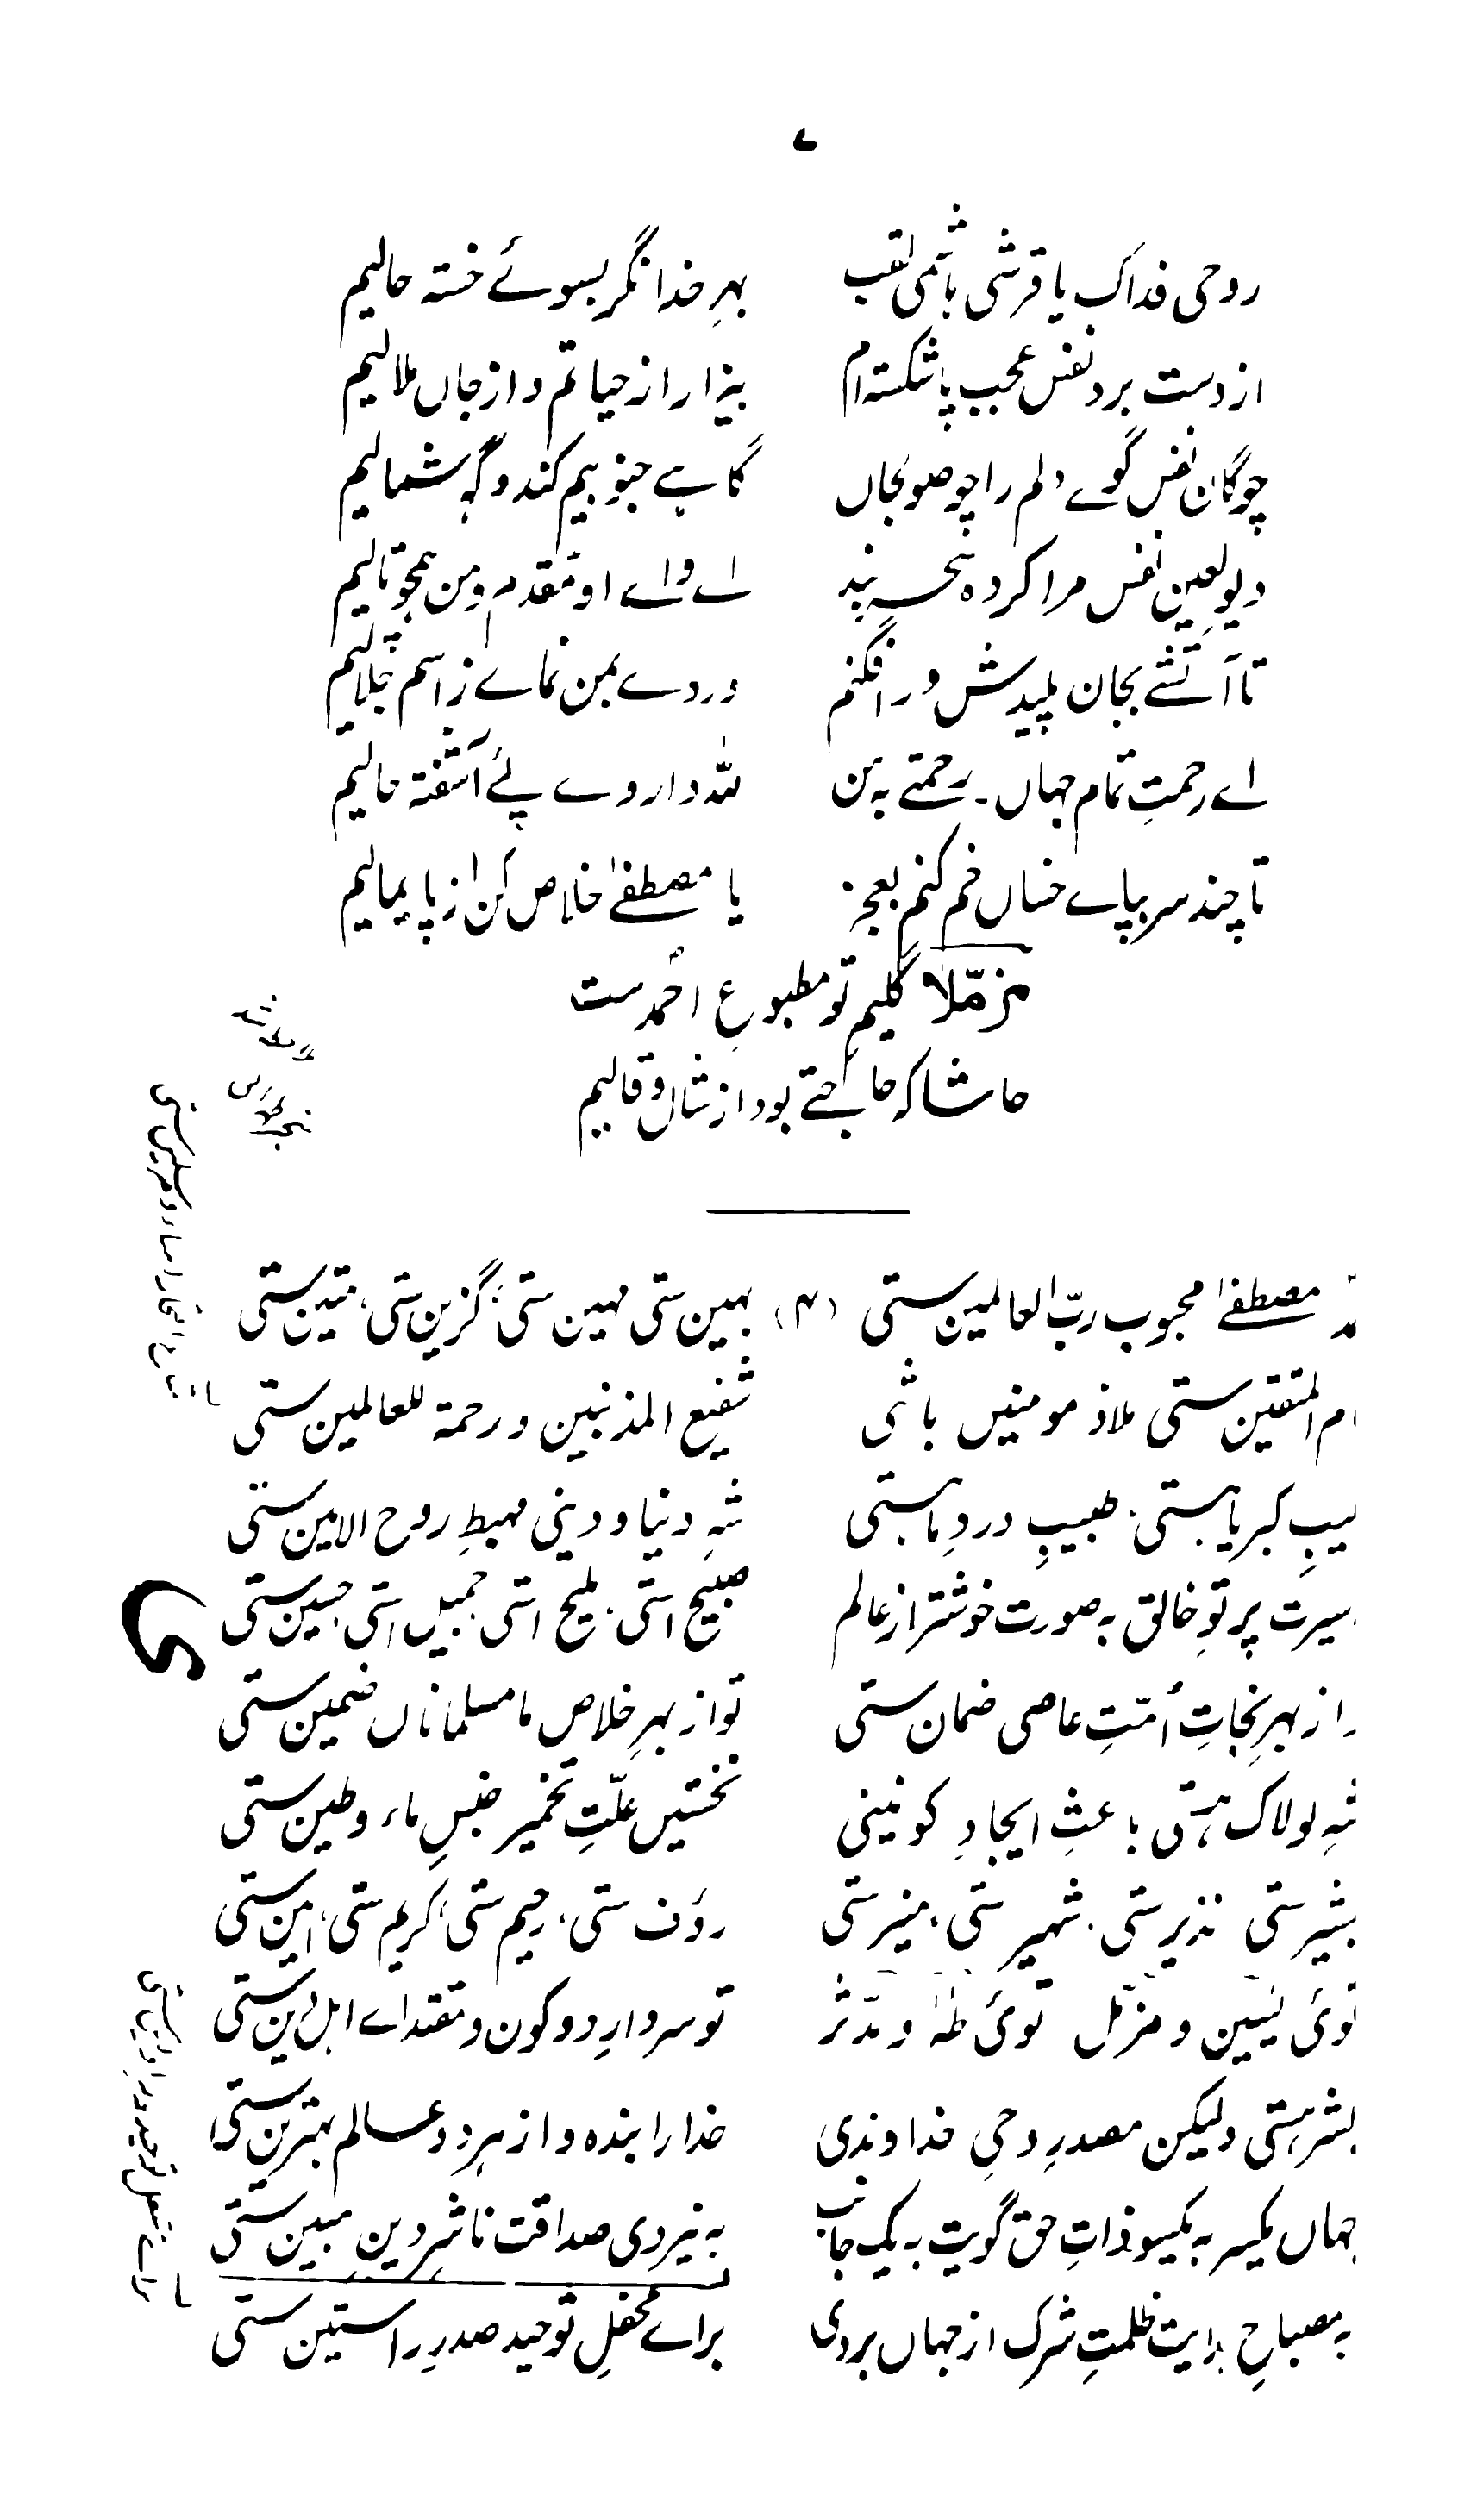 ۷
روحی فداک یا قرشی ہاشمی لقب بہرِ خدا نگر بسوئے خستہ حالیم
از دست برد نفس عجب پا شکستہ ام بیزار از حیاتم و از جاں ملالیم
چوگان نفس گوے دلم را چو صولجاں گاہے جنوبیم کند و گہ شمالیم
دیو لعین نفس مرا کردہ اے واے او مقدمہ من
تا آتشے بجان پلیدش در افگنم وردے بمن نماے ز اسم جلالیم
اے رحمتِ تمام جہاں۔ رحمتے بہ من للہ دار وے پئے آشفتہ حالیم
تا چند سر بپاے خساں خم کنم بعجز یا مصطفےٰ خلاص کن از پایمالیم
مزمّلا گلیم تو مطبوعِ احمدست
حاشا کہ حاجتے بود از شال و قالیم
مصطفےٰ محبوب ربّ العالمین ستی (۴) بہین ستی مہین ستی، گزین ستی، متین ستی
ام المتقین ستی ملاذ مومنیں باشی شفیع المذنبین و رحمة للعالمین ستی
یبِ کبریا ہستی، طبیبِ دردِ ما ہستی شہِ دنیا و دینی مہبطِ روح الامین ستی
سیرت پرتوِ خالق بہ صورت خوشتر از عالم صبیح استی، ملیح استی، جمیل استی، حسین ستی
از بہرِ نجاتِ اُمّتِ عاصی ضمان ستی تو از بہرِ خلاص ما مسلماناں ضمین ستی
شہِ لولاک ہستی باعثِ ایجادِ کونینی نخستیں علّتِ تخمیر جنسِ ماء و طین ستی
بشیر ستی نذیر ستی، شہیر ستی، منیر ستی رؤف ستی، رحیم ستی، کریم ستی، امین ستی
توئی یٰسین و مزّمل توئی طٰہٰ و مدّثر تو سردارِ دو کون و مقتداے اہل دین ستی
بشر ہستی ولیکن مصدرِ وحیِ خداوندی خدا را بندہ و از ہر دو عالم بہترین ستی
جہاں یکسر بہ یکسو ذاتِ حق گویت بہ یک جانب بہ نیروی صداقت ناشرِ دین مبین ستی
بہ مصباحِ ہدایت ظلمتِ شرک از جہاں بردی براے محفلِ توحید صدرِ راستین ستی